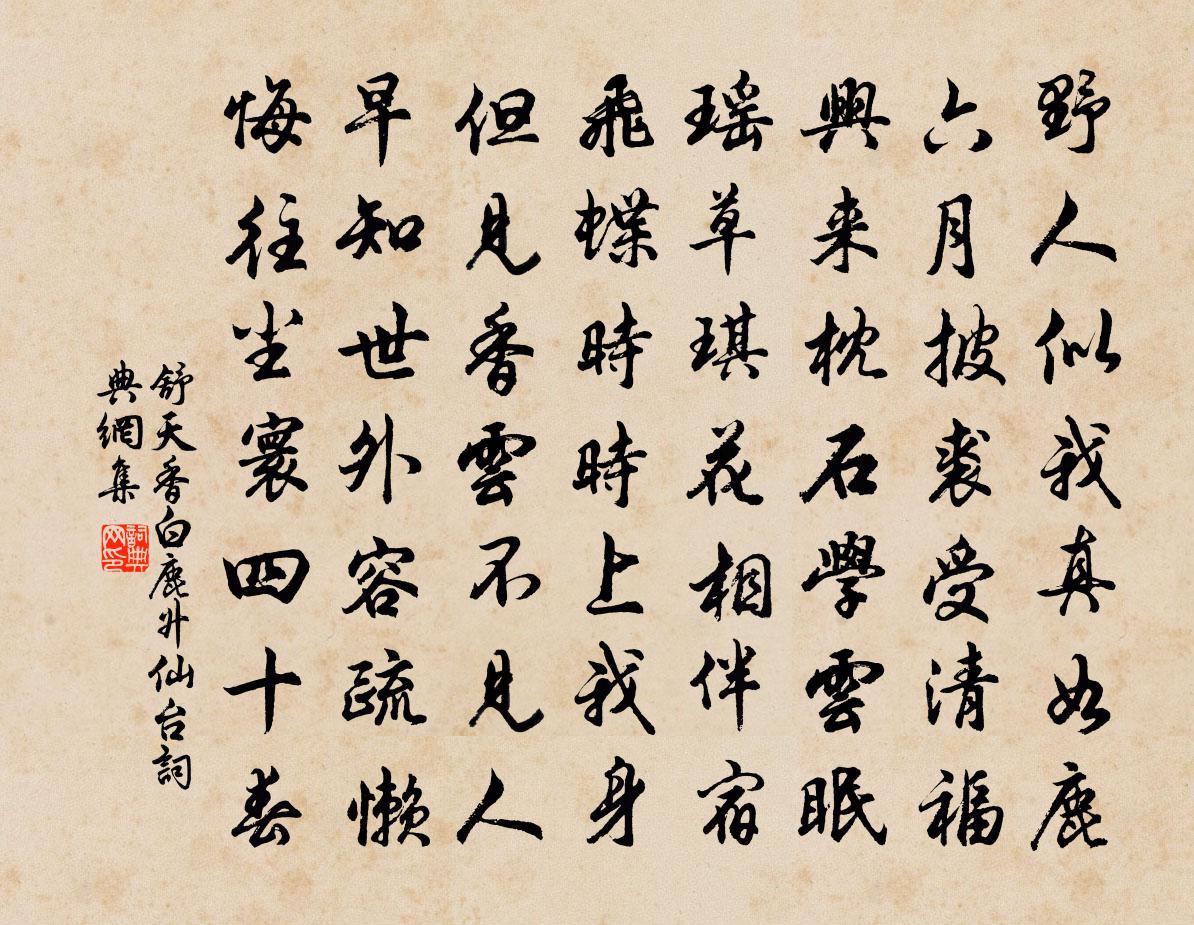 野人似我真如鹿
六月披裘受清福
興来枕石學雲眠
瑶草琪花相伴宿
飛蝶時時上我身
但見香雲不見人
早知世外容疏懶
悔往塵寰四十春
舒天香白鹿升仙台詞
典網集
詞典
网印